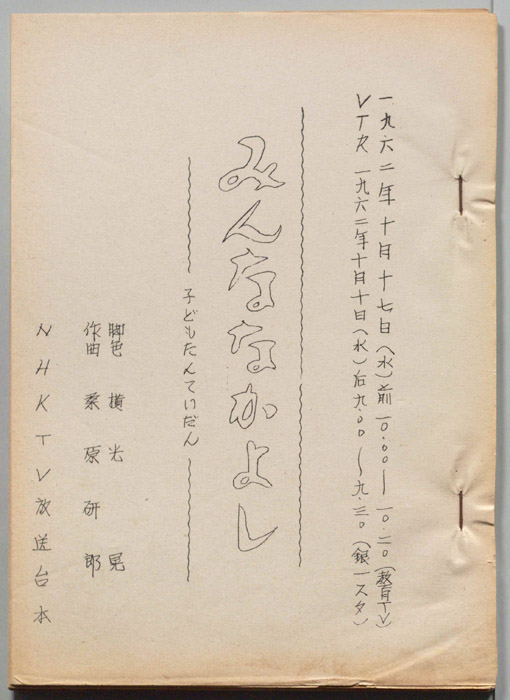 一九六二年十月十七日(水)前一〇.〇〇―一〇.二〇(教育TV)
VTR 一九六二年十月十日(水)后九.〇〇~九.三〇(銀一スタ)
みんななかよし
子どもたんていだん
脚色 横光晃
作曲 桑原研郎
NHKTV放送台本